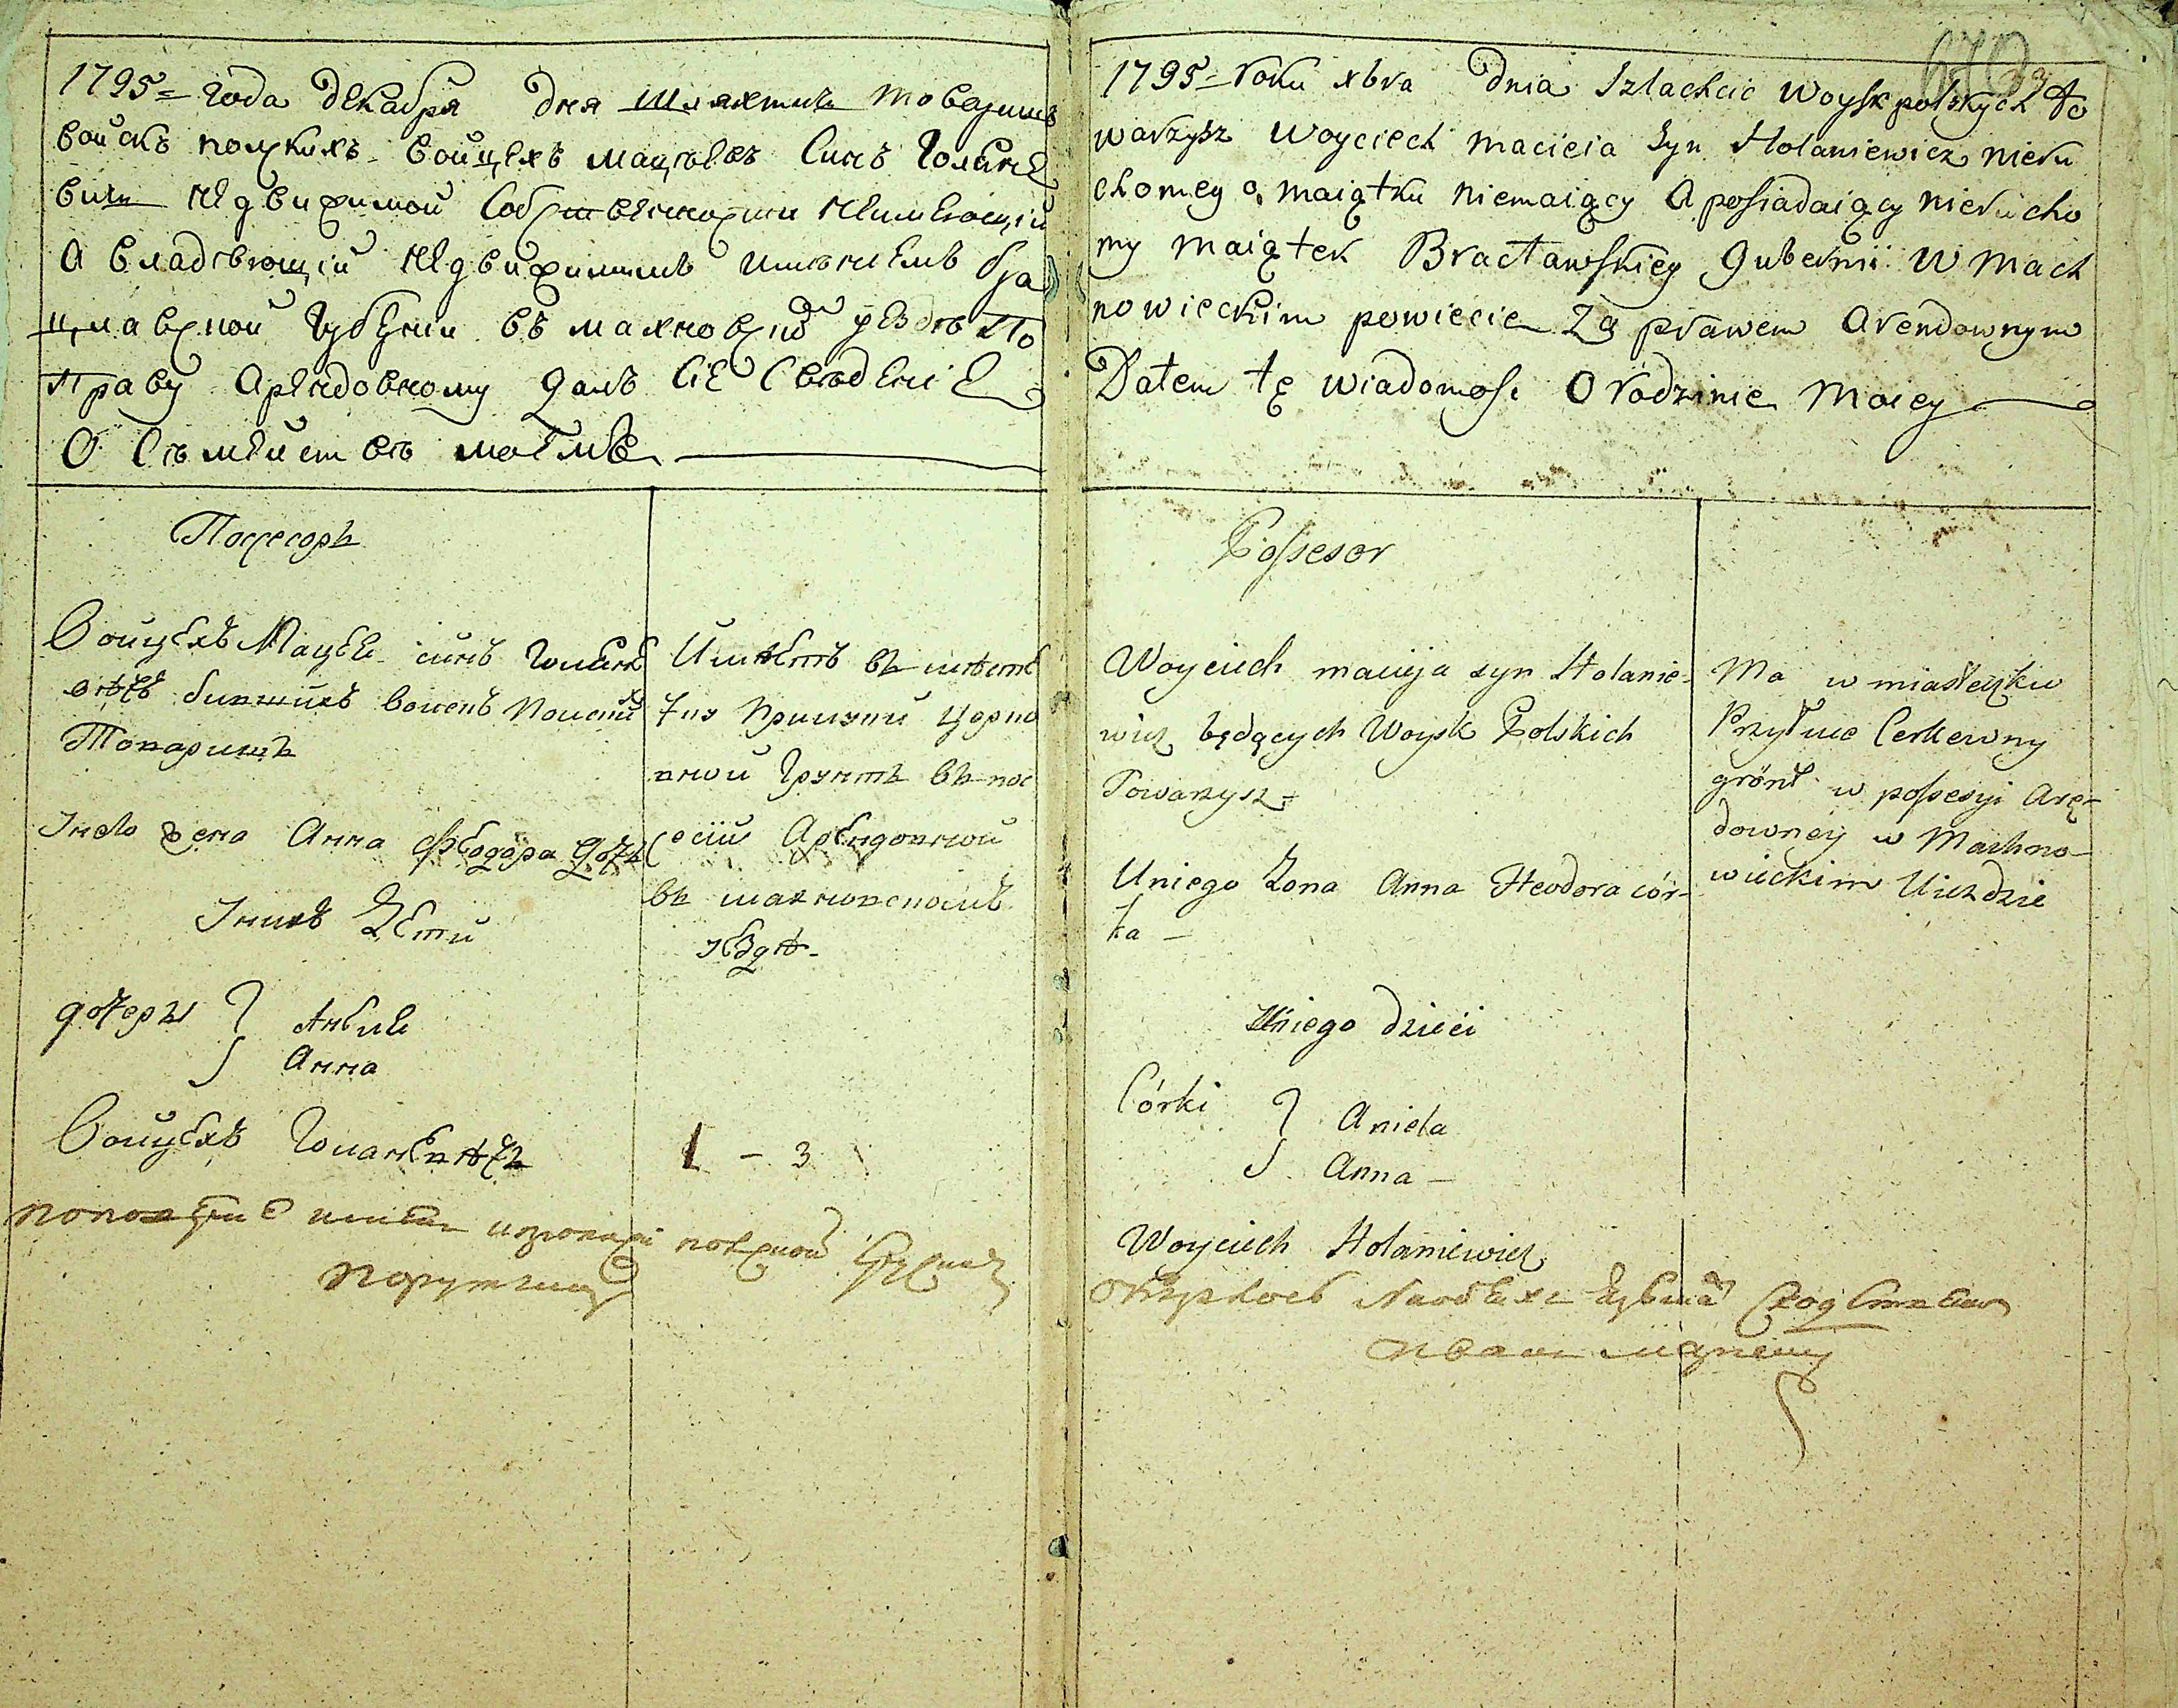 1795 = года декабря дня шляхтичь товарищъ
войскъ полскихъ войцехъ мацѣевъ синъ Голяне
вичь недвижимой собственности неимеющiй
а владѣющiй недвижимимъ имѣнiемъ бра
цлавской губернiи въ махновской уездѣ по
праву арендовному далъ сiе сведенiе
О семействе моемъ
Поссесоръ
Войцехъ Мацея синъ Голяне
вѣчъ бившихъ воискъ полский
Товарищъ
жена Анна Феодора дочь
дети
дочеры } Анеля
Анна
Войцехъ Голаневѣчъ
Имѣетъ въ мѣсте
чку Прилуки церко
вной грунтъ въ пос
сесiи Арендовной
въ махновскомъ
уездѣ
1 - 3
порутчикъ
670
1795 = roku xbra Dnia Szlachcic Woysk polskych to
warzysz Woyciech Macieia Syn Holaniewicz nieru
chomego maiątku niemaiący a posiadaiący nierucho
my maiątek Bracławskiey Gubernii w Mach
nowieckim powiecie za prawem Arendownym
Datem tę wiadomość O rodzinie moiey
Possesor
Woyciech macieja syn Holanie-
wicz będących Woysk Polskich
Towarzysz
Uniego Zona Anna Heodora cór-
ka —
Uniego dzieci
Córki } Aniela
Anna —
Woyciech Holaniewicz
Ma w miasteczku
Przyłuce Cerkewny
grónt w possesyi Arę-
downey w Machno-
wieckim Uiezdzie